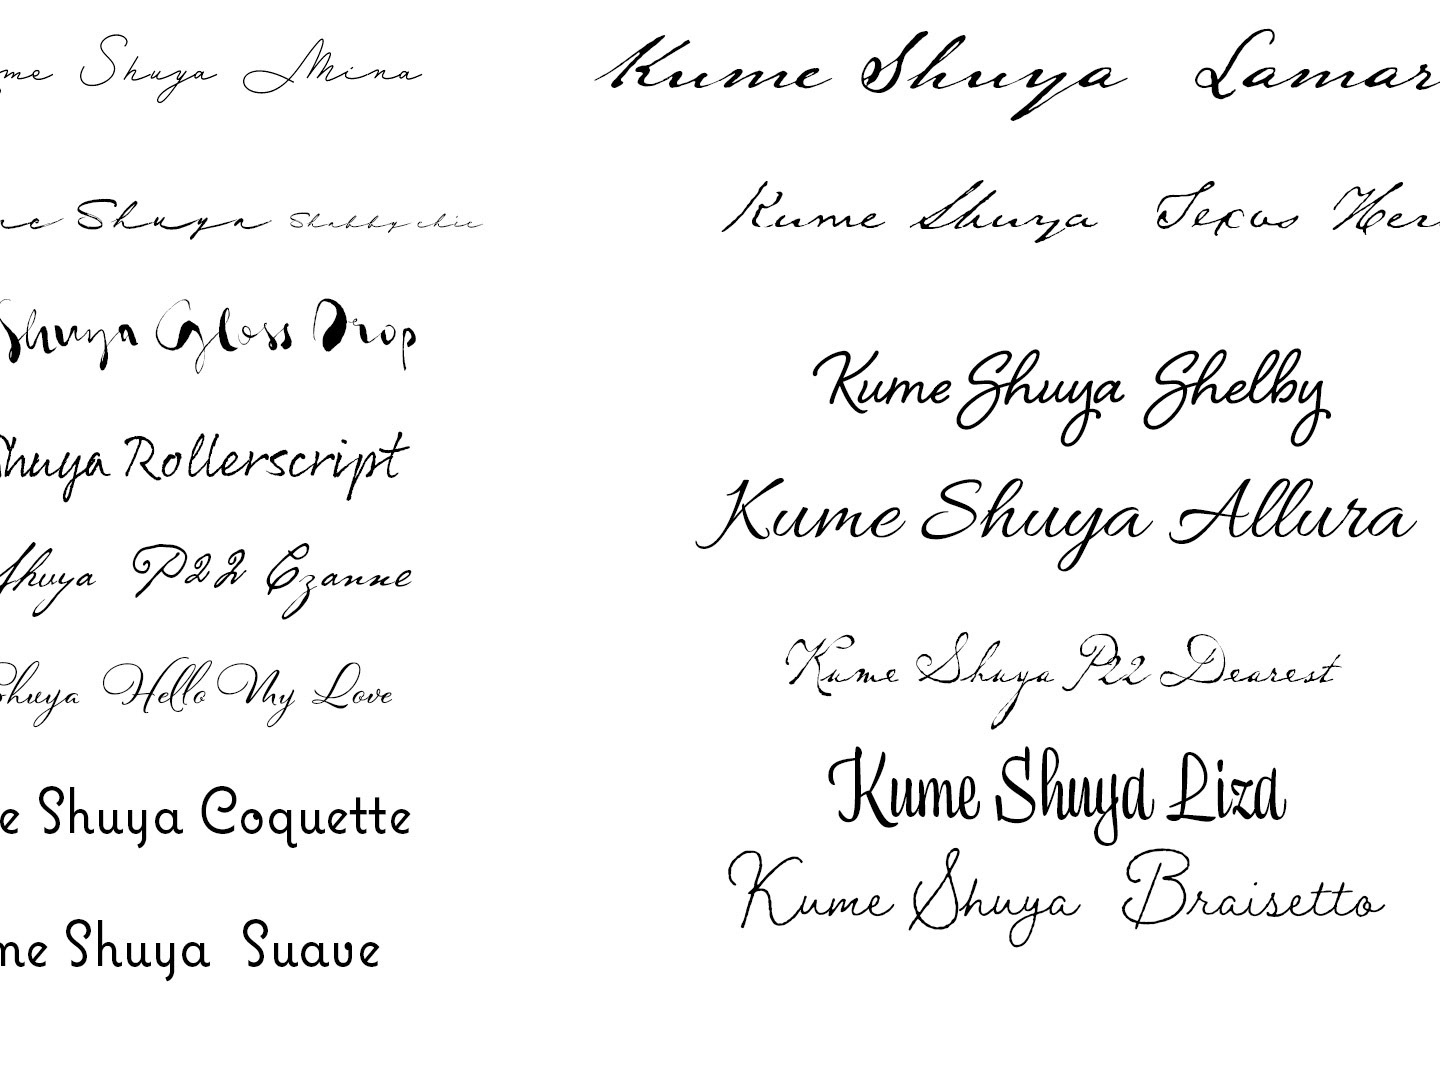 me Shuya Mina
Shuya Shabby chic
Shuya Gloss Drop
Shuya Rollerscript
Shuya P22 Czanne
Shuya Hello My Love
e Shuya Coquette
me Shuya Suave
Kume Shuya Lamar
Kume Shuya Texas Her
Kume Shuya Shelby
Kume Shuya Allura
Kume Shuya P22 Dearest
Kume Shuya Liza
Kume Shuya Braisetto